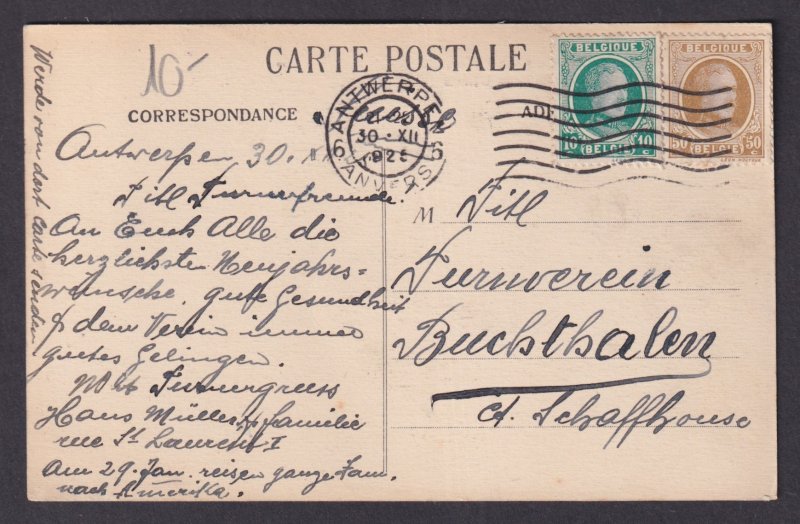 10-
CARTE POSTALE
CORRESPONDANCE
ANTWERPEN
6 30 XII 6
ANVERS
BELGIQUE
10 c 10 c
(BELGIË)
BELGIQUE
50 50
(BELGIË)
Antwerpen 30.
Titl Turnerfreunde.
An Euch Alle die
herzlichsten Neujahrs-
wünsche, gute Gesundheit
& dem Verein immer
gutes Gelingen.
Mit Turnergruss
Hans Müller & familie
rue St Laurent 1
Am 29. Jan. reisen ganze Fam.
nach Amerika.
Werde von dort Carte senden
M Titl
Turnverein
Buchthalen
Ct. Schaffhouse